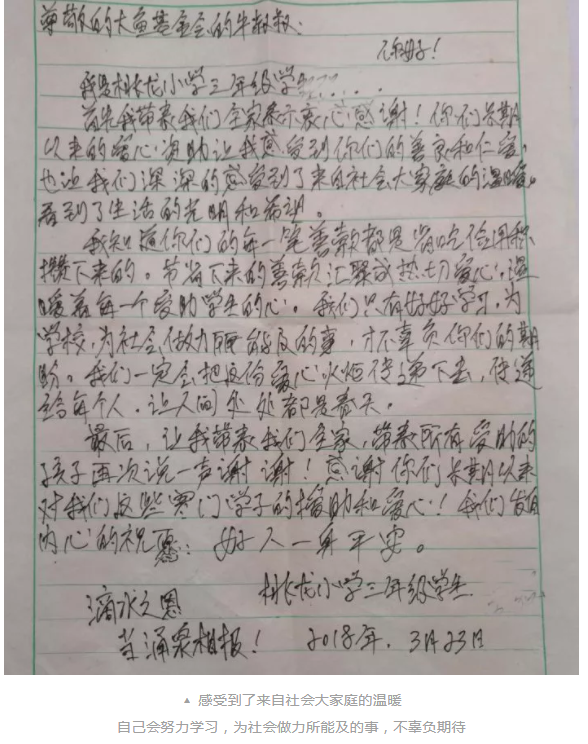 尊敬的大鱼基金会的牛叔叔：
您好！
我是村长龙小学三年级学生....
首先我带表我们全家表示衷心感谢！你们长期
以来的爱心资助让我感受到你们的善良和仁爱，
也让我们深深的感受到了来自社会大家庭的温暖。
看到了生活的光明和希望。
我知道你们的每一笔善款都是省吃俭用积
攒下来的。节省下来的善款汇聚成热切爱心。温
暖着每一个受助学生的心。我们只有好好学习，为
学校，为社会做力所能及的事，才不辜负你们的期
盼。我们一定会把这份爱心火焰传递下去，传递
给每个人，让人间处处都是春天。
最后，让我带表我们全家，带表所有受助的
孩子再次说一声谢谢！感谢你们长期以来
对我们这些寒门学子的援助和爱心！我们发自
内心的祝愿：好人一身平安。
村长龙小学三年级学生
滴水之恩
当涌泉相报！ 2018年.3月23日
▲ 感受到了来自社会大家庭的温暖
自己会努力学习，为社会做力所能及的事，不辜负期待